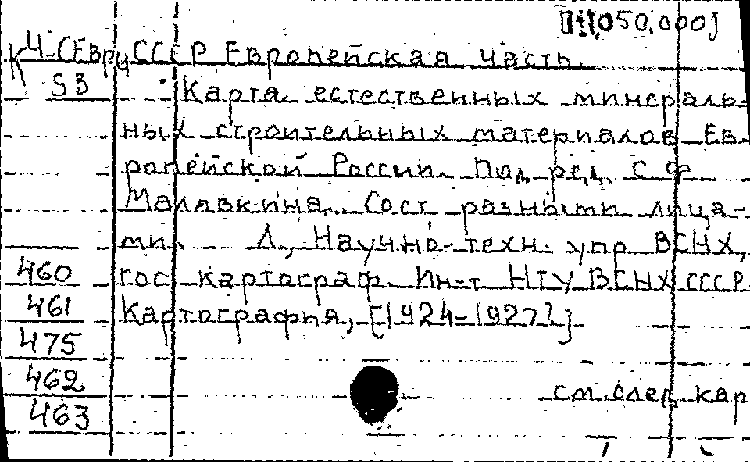 [1:1,050,000]
К Ч-(Евр) СССР Европейская часть.
53 Карта естественных минераль-
ных строительных материалов Ев-
ропейской России. Под ред. С.Ф.
Малявкина. Сост. разными лица-
ми. Л., Научно-техн. упр. ВСНХ,
460 гос. картограф. Ин-т НТУ ВСНХ СССР
461 Картография, [1924-1927]
475
462 см. след. кар
463